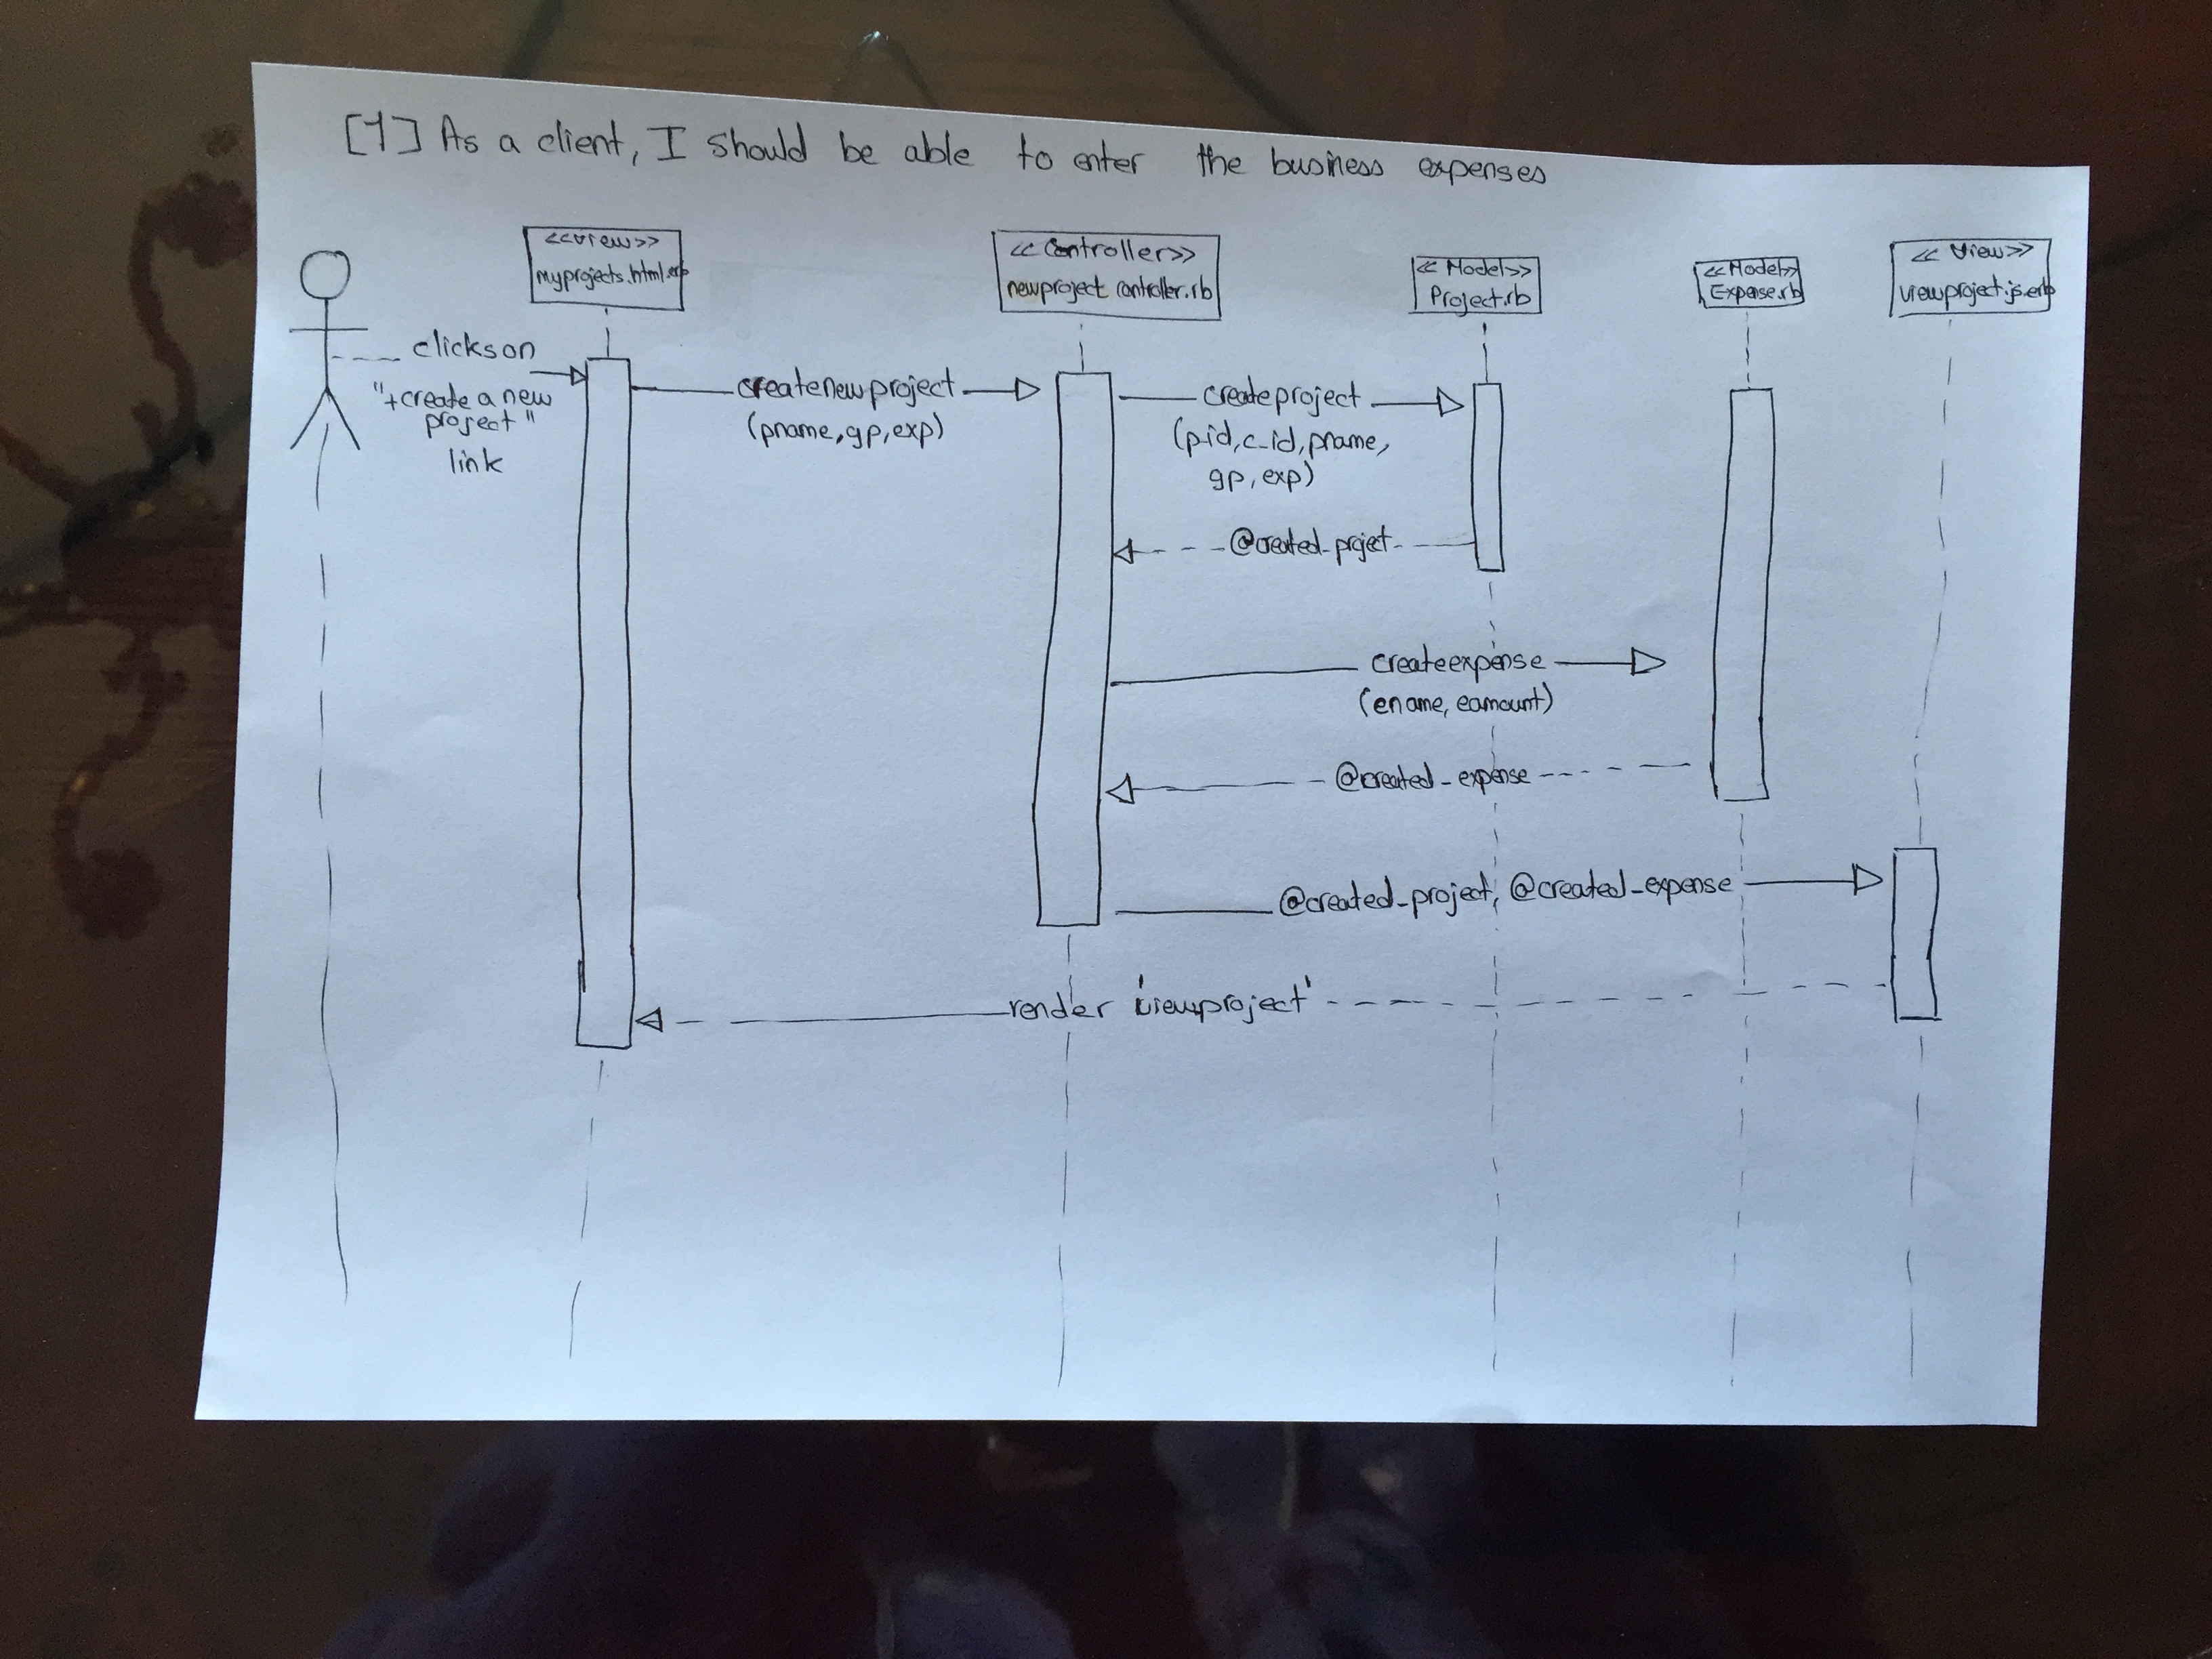 [1] As a client, I should be able to enter the business expenses
<<view>>
myprojects.html.erb
<<Controller>>
newproject controller.rb
<<Model>>
Project.rb
<<Model>>
Expense.rb
<<View>>
viewproject.js.erb
clicks on
"+create a new
project"
link
createnewproject
(pname,gp,exp)
createproject
(p_id,c_id,pname,
gp,exp)
@created_prject
createexpense
(ename, eamount)
@created_expense
@created_project, @created_expense
render 'viewproject'